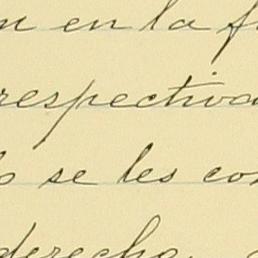 en la
respectiva
se les
derecho